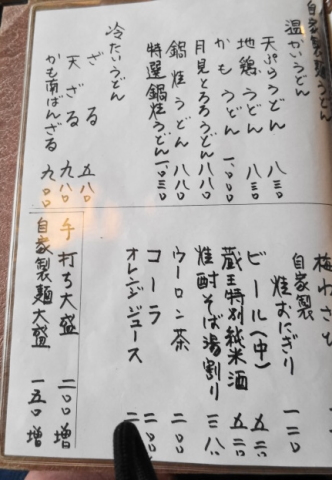 自家製麺うどん
温かいうどん
天ぷらうどん 八三〇
地鶏うどん 八三〇
かもうどん 一、〇〇〇
月見とろろうどん 八八〇
鍋焼うどん 八八〇
特選鍋焼うどん 一、〇三〇
冷たいうどん
ざる 五八〇
天ざる 九八〇
かも南ばんざる 九〇〇
梅わさ
自家製
焼おにぎり 一二〇
ビール(中) 五二〇
蔵王特別純米酒 五二〇
焼酎そば湯割り 三八〇
ウーロン茶 二〇〇
コーラ 二〇〇
オレンジジュース 二
手打ち大盛 二〇〇増
自家製麺大盛 一五〇増